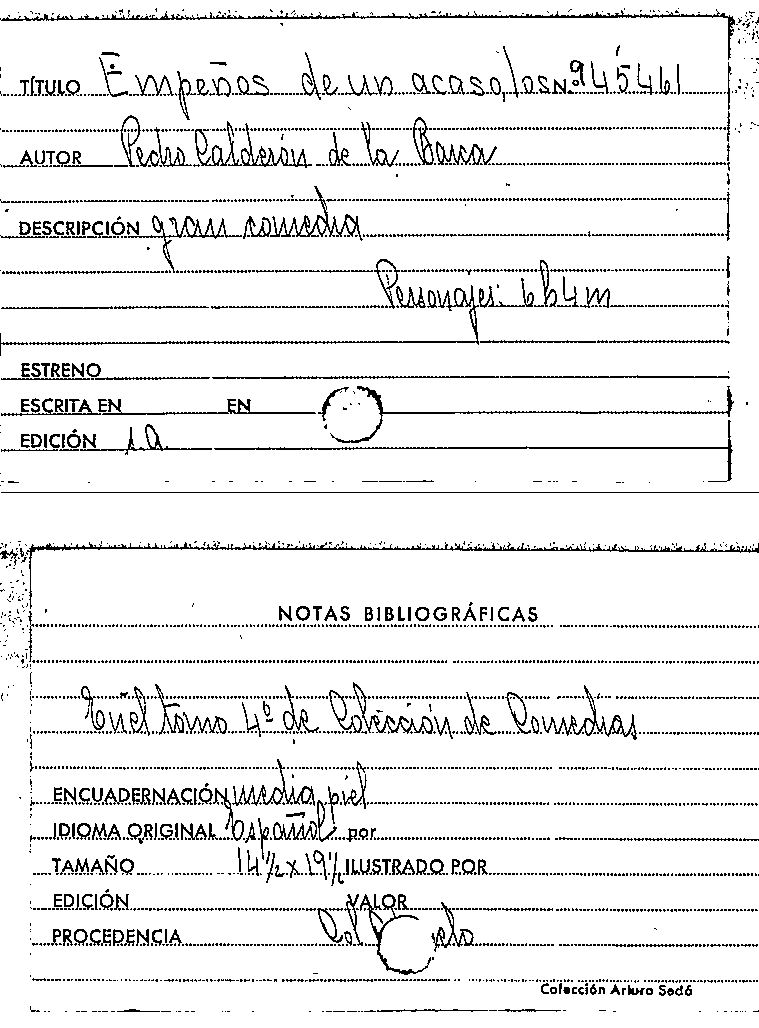 TÍTULO Empeños de un acaso, los Nº 945461
AUTOR Pedro Calderón de la Barca
DESCRIPCIÓN gran comedia
Personajes: 6 h 4 m
ESTRENO
ESCRITA EN EN
EDICIÓN s.a.
NOTAS BIBLIOGRÁFICAS
En el tomo 4º de Colección de Comedias
ENCUADERNACIÓN media piel
IDIOMA ORIGINAL Español por
TAMAÑO 14½ x 19½ ILUSTRADO POR
EDICIÓN VALOR
PROCEDENCIA Col
Colección Arturo Sedó